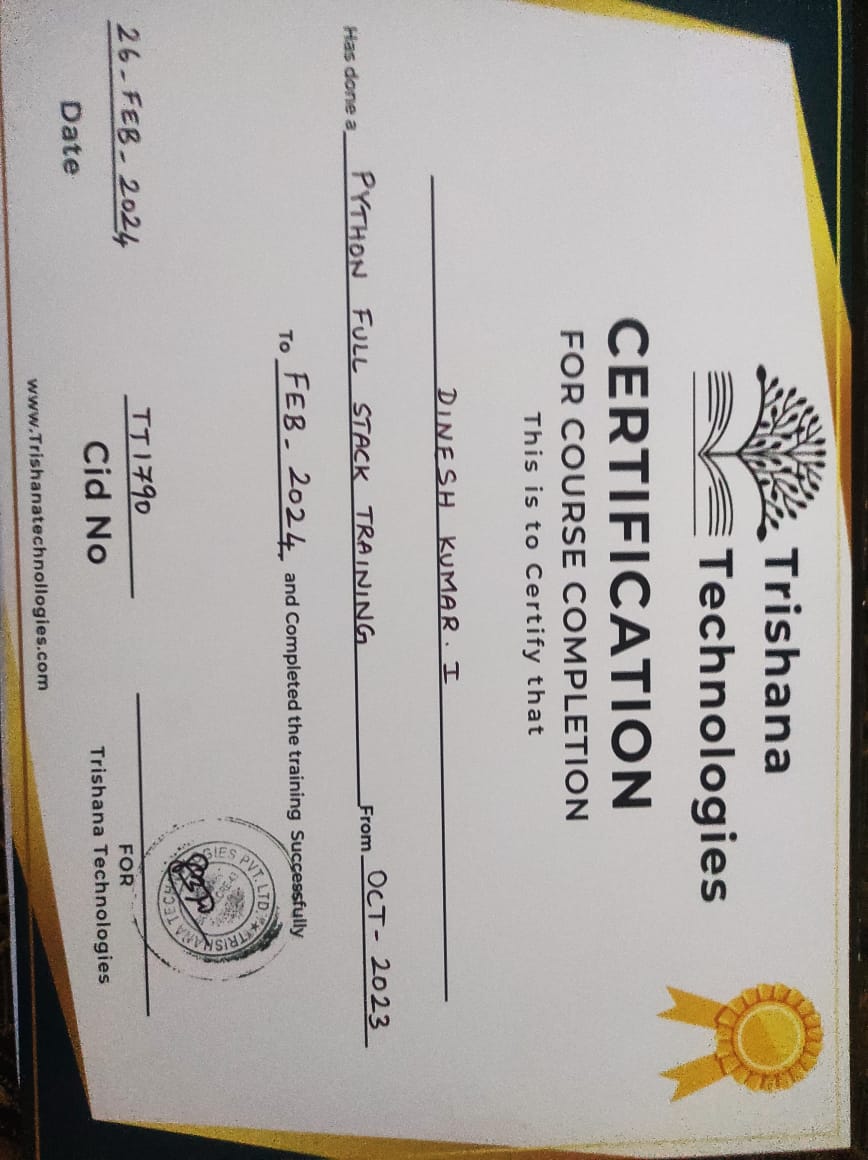 Trishana
Technologies
CERTIFICATION
FOR COURSE COMPLETION
This is to Certify that
DINESH KUMAR . I
Has done a PYTHON FULL STACK TRAINING From OCT - 2023
To FEB - 2024 and Completed the training Successfully
26 - FEB - 2024
Date
TT1790
Cid No
TRISHANA TECH GIES PVT. LTD.
FOR
Trishana Technologies
www.Trishanatechnollogies.com